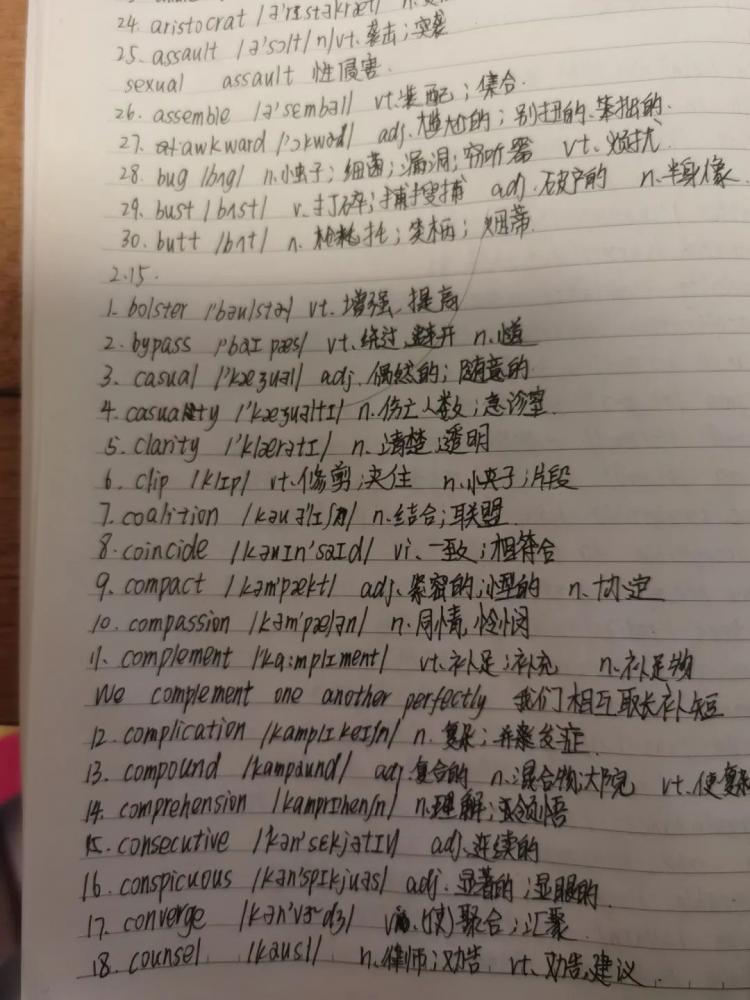 24. aristocrat /ə'rɪstəkræt/ n.
25. assault /ə'sɔlt/ n/vt. 袭击；突袭
sexual assault 性侵害.
26. assemble /ə'sembəl/ vt. 装配；集合.
27. awkward /'ɔkwəd/ adj. 尴尬的；别扭的、笨拙的.
28. bug /bʌg/ n. 小虫子；细菌；漏洞；窃听器 vt. 烦扰
29. bust /bʌst/ v. 打碎；搜捕 adj. 破产的 n. 半身像
30. butt /bʌt/ n. 枪托；笑柄；烟蒂.
2.15.
1. bolster /'bəulstə/ vt. 增强、提高
2. bypass /'baɪpæs/ vt. 绕过、避开 n. 小道
3. casual /'kæʒuəl/ adj. 偶然的；随意的
4. casualty /'kæʒuəltɪ/ n. 伤亡人数；急诊室.
5. clarity /'klærətɪ/ n. 清楚、透明
6. clip /klɪp/ vt. 修剪；夹住 n. 小夹子；片段
7. coalition /kəuə'lɪʃn/ n. 结合；联盟
8. coincide /kəuɪn'saɪd/ vi. 一致；相符合
9. compact /kəm'pækt/ adj. 紧密的；小型的 n. 协定
10. compassion /kəm'pæʃən/ n. 同情、怜悯
11. complement /'ka:mplɪment/ vt. 补足；补充 n. 补足物
We complement one another perfectly 我们相互取长补短
12. complication /kamplɪkeɪʃn/ n. 复杂；并发症
13. compound /kampaund/ adj. 复合的 n. 混合物；大院 vt. 使复杂
14. comprehension /kamprɪhenʃn/ n. 理解；领悟
15. consecutive /kən'sɛkjətɪv/ adj. 连续的
16. conspicuous /kən'spɪkjuəs/ adj. 显著的；显眼的.
17. converge /kən'vɝdʒ/ v. (使)聚合；汇聚
18. counsel /kausl/ n. 律师；劝告 vt. 劝告、建议.